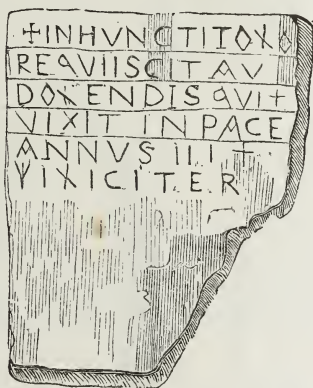 +INHVNCTITOLO
REQVIISCITAV
DOLENDIS QVI+
VIXIT INPACE
ANNVS III T
FILICIT.E.R